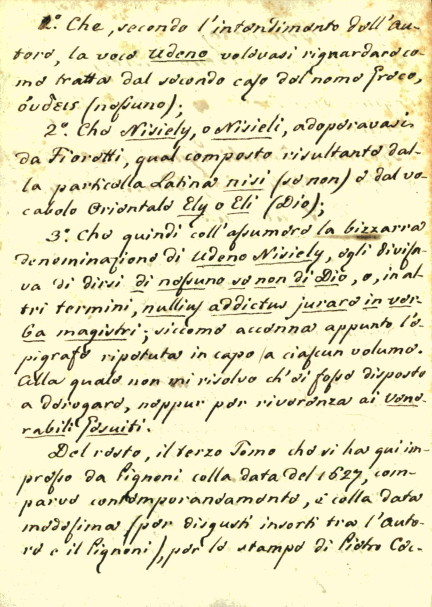 1.º Che, secondo l'intendimento dell'Au-
tore, la voce Udeno volevasi riguardare co-
me tratta dal secondo caso del nome Greco,
ὀυδεις (nessuno);
2.º Che Nisiely, o Nisieli, adoperavasi
da Fioretti, qual composto risultante dal-
la particella Latina nisi (se non) e dal vo-
cabolo Orientale Ely o Eli (Dio);
3.º Che quindi coll'assumere la bizzarra
denominazione di Udeno Nisiely, egli divisa-
va di dirsi di nessuno se non di Dio, o, in al-
tri termini, nullius addictus jurare in ver-
ba magistri; siccome accenna appunto l'e-
pigrafe ripetuta in capo a ciascun volume.
Alla quale non mi risolvo ch'ei fosse disposto
a derogare, neppur per riverenza ai vene-
rabili Gesuiti.
Del resto, il terzo Tomo che si ha qui im-
presso da Pignoni colla data del 1627, com-
parve contemporaneamente, e colla data
medesima (per disgusti insorti tra l'Auto-
re e il Pignoni), per le stampe di Pietro Cec-